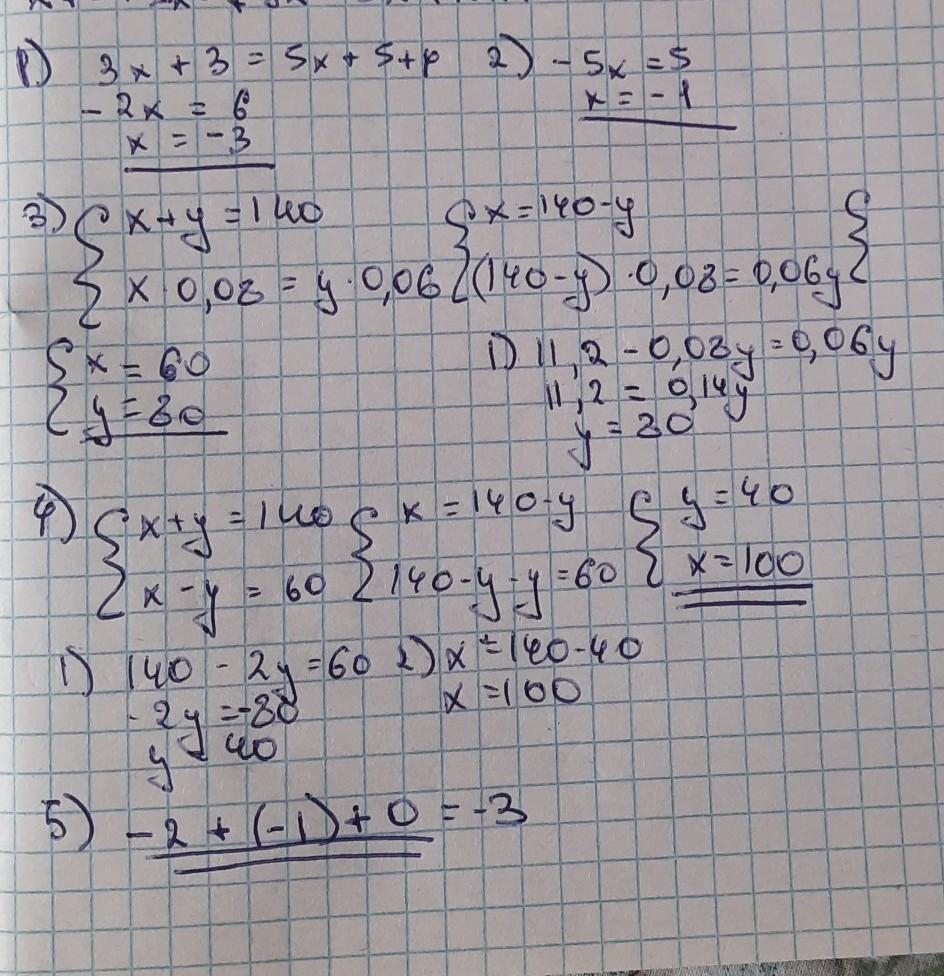 1) 3x + 3 = 5x + 5+p 2) - 5x = 5
- 2x = 6 x = - 1
x = -3
3) { x+y = 140 { x = 140-y {
x · 0,08 = y · 0,06 (140-y) · 0,08 = 0,06y
{ x = 60 1) 11,2 - 0,08y = 0,06y
y = 80 11,2 = 0,14y
y = 80
4) { x+y = 140 { x = 140-y { y = 40
x - y = 60 140-y-y = 60 x = 100
1) 140 - 2y = 60 2) x = 140-40
-2y = -80 x = 100
y 40
5) -2 + (-1) + 0 = -3